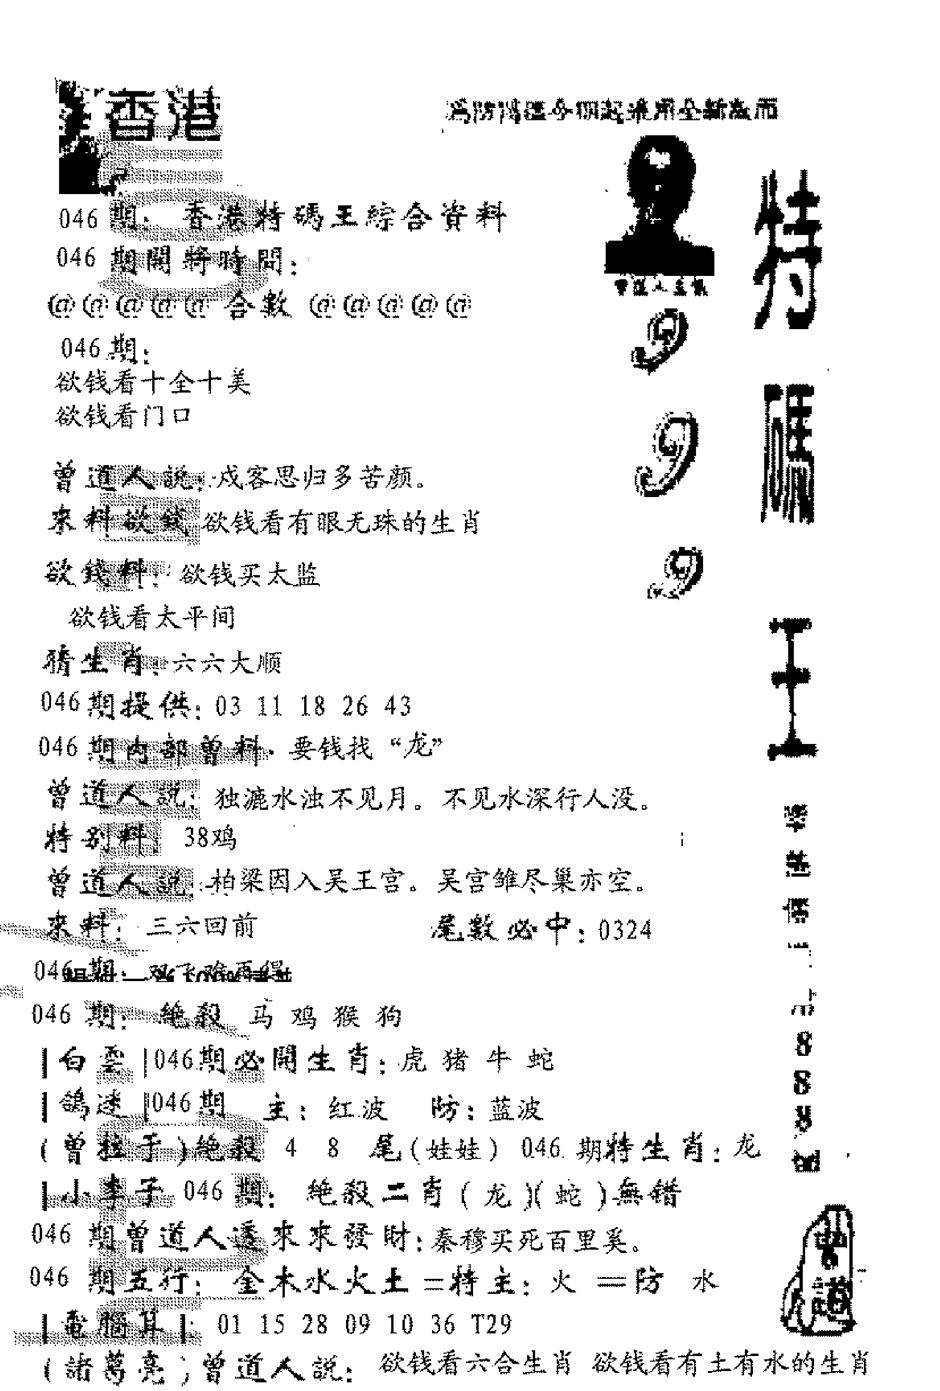 香港
為防濁溫今期起採用全新版面
046期：香港特碼王綜合資料
046期開將時間：
@@@@@合數@@@@@
046期：
欲钱看十全十美
欲钱看门口
曾道人說：戍客思归多苦颜。
來料欲錢 欲钱看有眼无珠的生肖
欲錢料：欲钱买太监
欲钱看太平间
猜生肖：六六大顺
046期提供：03 11 18 26 43
046期内部曾料：要钱找“龙”
曾道人説：独漉水浊不见月。不见水深行人没。
特别料： 38鸡
曾道人説：柏梁因入吴王宫。吴宫雏尽巢亦空。
來料：三六回前
尾數必中：0324
046期：双飞难再得
046期：絶殺 马 鸡 猴 狗
|白雲|046期必開生肖：虎 猪 牛 蛇
|鴿迷|046期 主：红波 防：蓝波
(曾拉于)絶殺 4 8 尾(娃娃) 046.期特生肖：龙
|小李子 046期：絶殺二肖(龙)(蛇)無错
046期曾道人透來來發財：秦穆买死百里奚。
046期五行：金木水火土=特主：火 =防 水
|電腦算|：01 15 28 09 10 36 T29
(諸葛亮)曾道人説：欲钱看六合生肖 欲钱看有土有水的生肖
9
9
9
特
碼
王
888
曾道